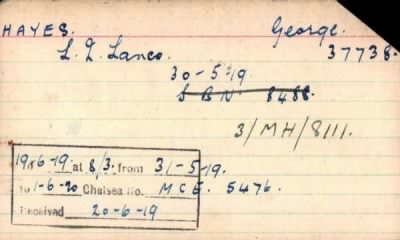 HAYES. George.
L. F. Lancs. 37738.
30-5-19.
S B N 8488.
3/MH/8111.
19-6-19. at 8/3. from 31-5-19.
to 1-6-20 Chelsea No. MCE. 5476.
Received 20-6-19